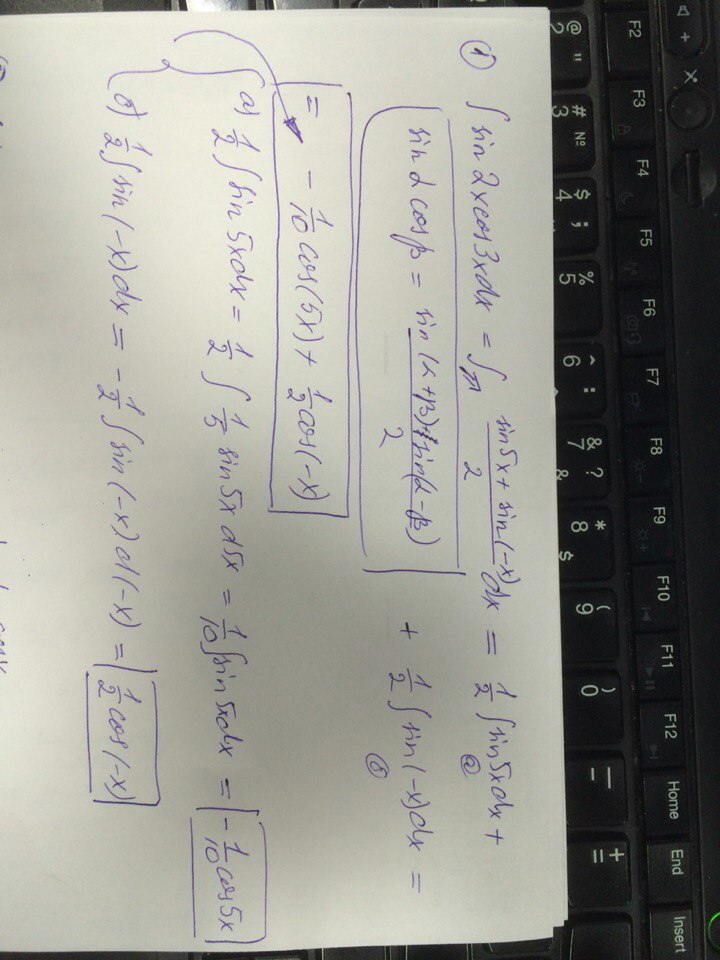 1) ∫ sin 2x cos 3x dx = ∫ (sin 5x + sin(-x))/2 dx = 1/2 ∫ sin 5x dx +
а
sin α cos β = (sin(α+β)+sin(α-β))/2 + 1/2 ∫ sin(-x) dx =
б
= - 1/10 cos(5x) + 1/2 cos(-x)
а) 1/2 ∫ sin 5x dx = 1/2 ∫ 1/5 sin 5x d5x = 1/10 ∫ sin 5x dx = - 1/10 cos 5x
б) 1/2 ∫ sin(-x) dx = - 1/2 ∫ sin(-x) d(-x) = 1/2 cos(-x)
F2 F3 F4 F5 F6 F7 F8 F9 F10 F11 F12 Home End Insert
@ 2 " # 3 № $ 4 ; % 5 ^ 6 : & 7 ? * 8 ( 9 ) 0 _ - + =